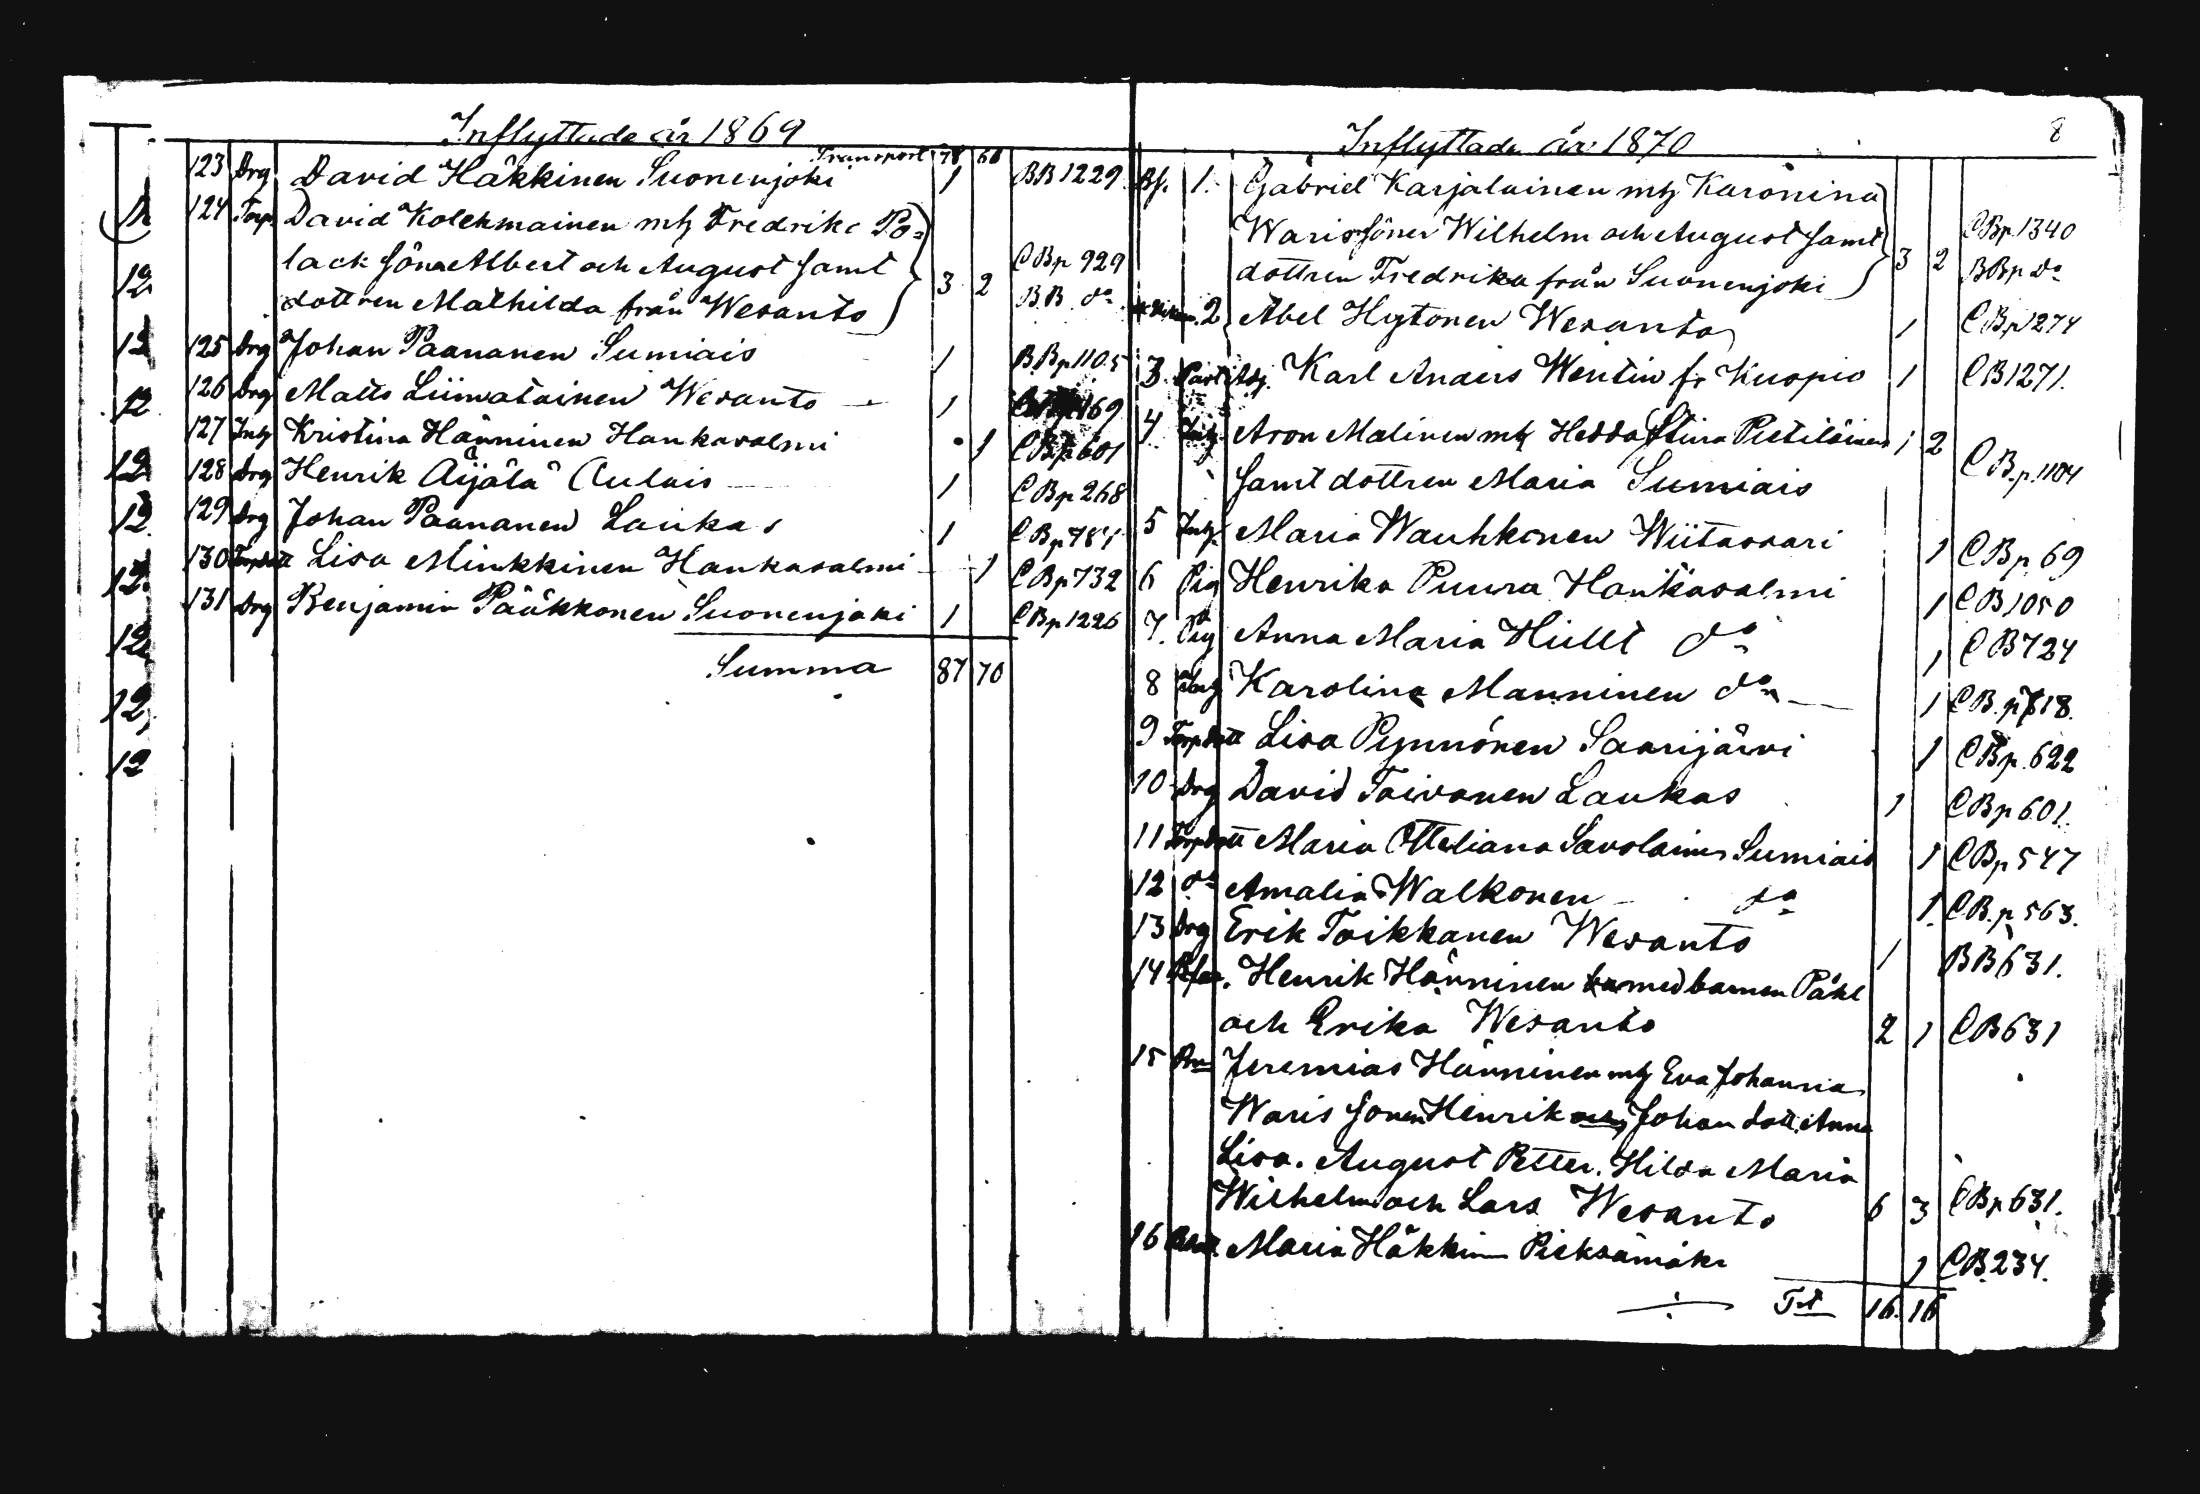 Inflyttade år 1869
Transport 78 66
123 Drg David Häkkinen Suonenjoki 1 BB 1229
124 Torp. David Kolehmainen mh Fredrika Po=
lack Söner Albert och August samt
dottren Mathilda från Wesanto 3 2 CBp 929 BB do
125 Drg Johan Paananen Sumiais 1 BBp 1105
126 Drg Matts Liimatainen Wesanto 1 169
127 Inh Kristina Hänninen Hankasalmi 1 CBp 601
128 Drg Henrik Äijälä Aulais 1 CBp 268
129 Drg Johan Paananen Laukas 1 CBp 781
130 Torpdott Lisa Minkkinen Hankasalmi 1 CBp 732
131 Drg Benjamin Pääkkonen Suonenjoki 1 CBp 1226
Summa 87 70
12
12
12
12
12
12
12
12
12
12
8
Inflyttade år 1870
Bf. 1. Gabriel Karjalainen mh Karonina
Waris söner Wilhelm och August samt
dottren Fredrika från Suonenjoki 3 2 CBp 1340 BBp do
2 Abel Hytönen Wesanto 1 CBp 1274
3 Karl Anders Wentin fr Kuopio 1 CB 1271.
4 Inh Aron Malinen mh Hedda Stina Pietiläinen 1 2
samt dottren Maria Sumiais CBp. 1104
5 Inh. Maria Wauhkonen Wiitasaari 1 CBp 69
6 Pig Henrika Puura Hankasalmi 1 CB 1050
7. Pig Anna Maria Hiilt do 1 CB 724
8 Karolina Manninen do 1 CB. p 718.
9 Torpdott Lisa Pynnönen Saarijärvi 1 CBp. 622
10 Drg David Toivonen Laukas 1 CBp 601.
11 Torpdott Maria Otteliana Savolainen Sumiais 1 CBp 547
12 do Amalia Walkonen do 1. CB. p 563.
13 Drg Erik Toikkanen Wesanto 1 BB 631.
14 Henrik Hänninen med barnen Påhl
och Erika Wesanto 2 1 CB 631
15 Jeremias Hänninen mh Eva Johanna
Waris sonen Henrik Johan dott. Anna
Lisa. August Petter. Hilda Maria
Wilhelm och Lars Wesanto 6 3 CBp 631.
16 Maria Häkkinen Pieksämäki 1 CB. 234.
Trt 16. 16